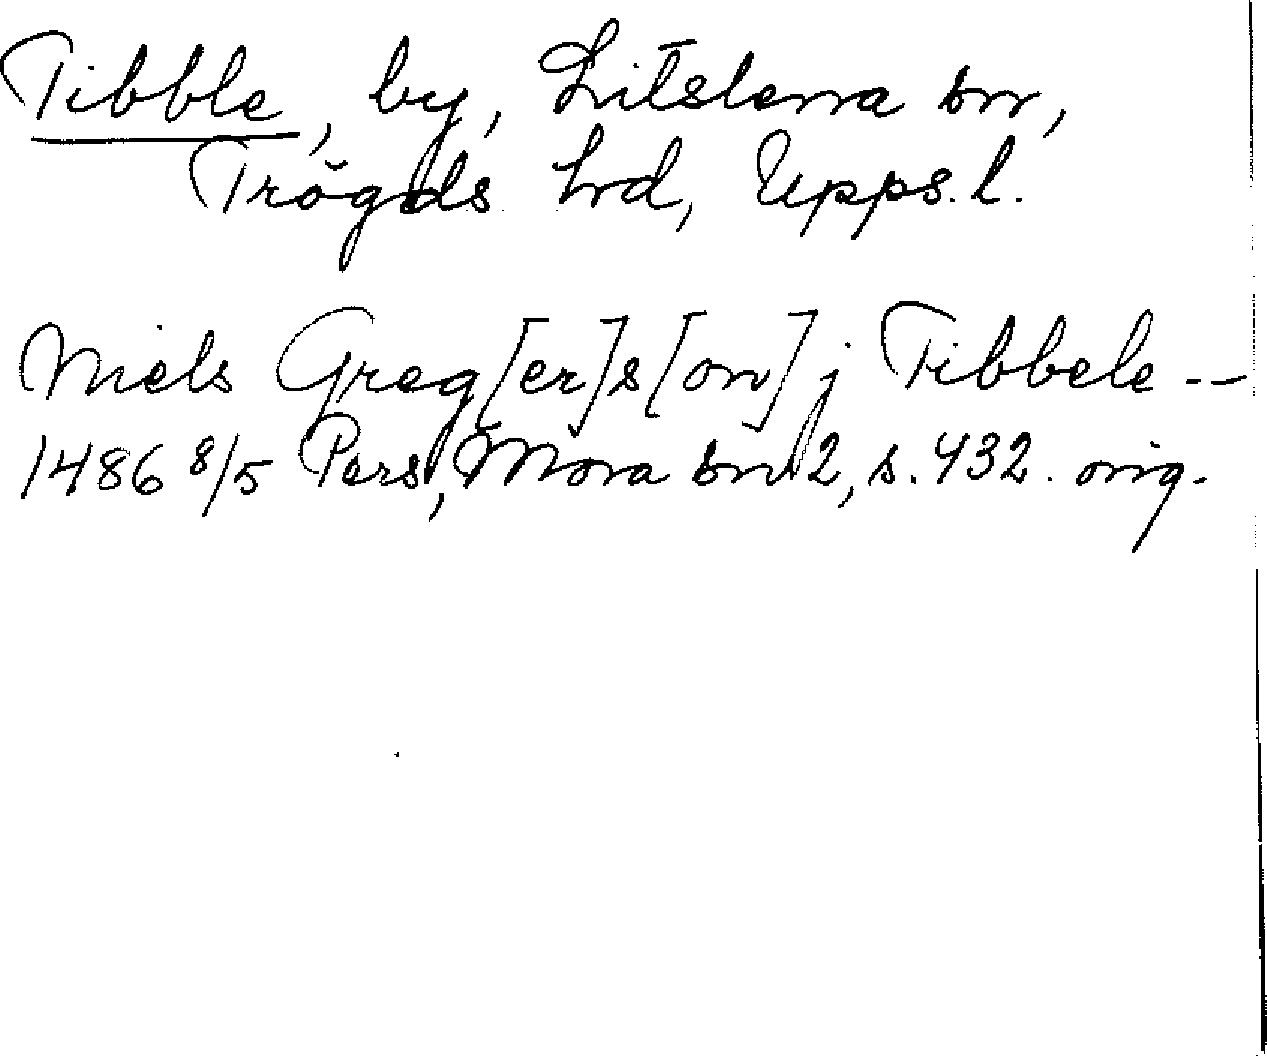 Tibble, by, Litslena sn,
Trögds hd, Upps. l.
Niels Greg[er]s[on] j Tibbele --
1486 8/5 Pers, Mora sn 2, s. 432. orig.